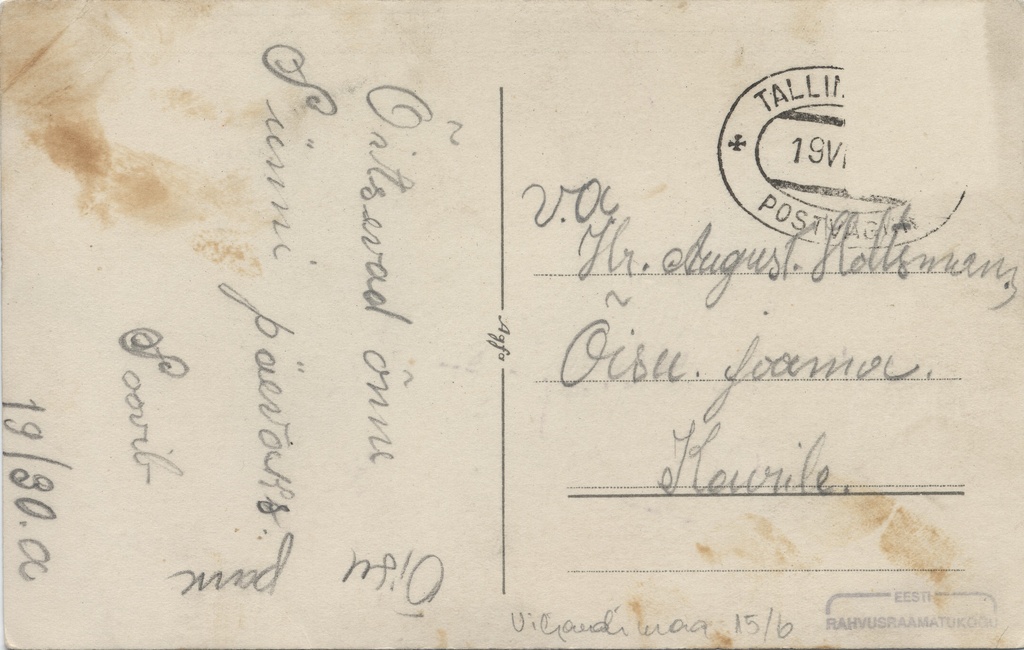 Õitsvad õnne
Sünni päevaks:
Soovib
19/30.a
Õisu
TALLIN
19VI
POSTVAGUN
v.a
Hr. August. Holtsmann,
Õisu. jaama.
Kavrile.
Agfa
Viljandi maa 15/6
EESTI
RAHVUSRAAMATUKOGU